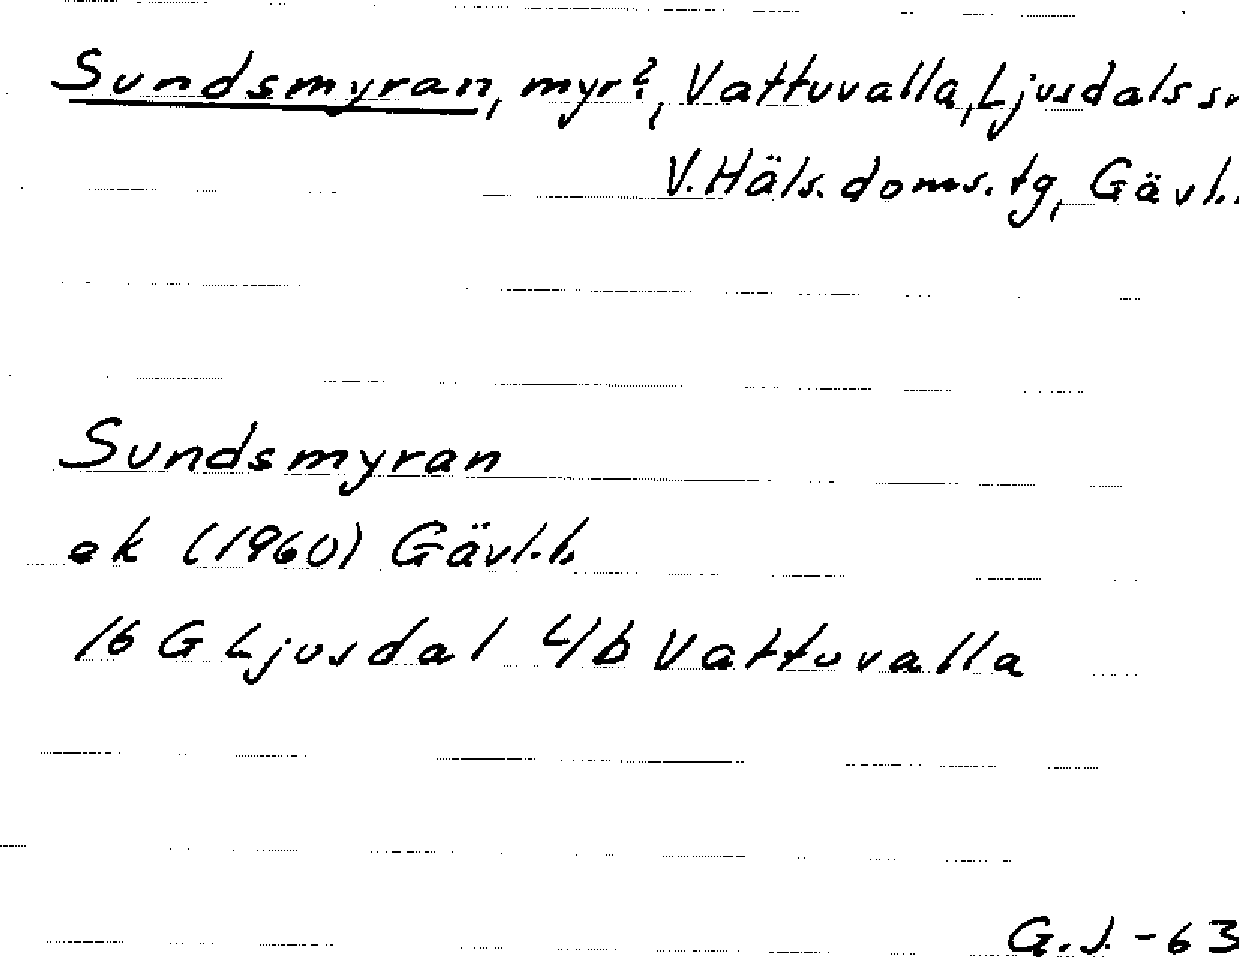 Sundsmyran, myr?, Vattuvalla, Ljusdals sn
V. Häls. doms. tg, Gävl.
Sundsmyran
ek (1960) Gävl.b.
16 G Ljusdal 4/b Vattuvalla
G.J. - 63